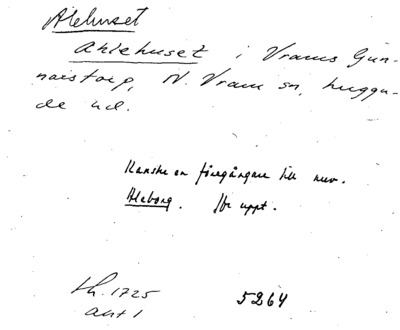 Alehuset
Ahlehuset i Vrams Gun-
narstorp, N. Vram sn, Luggu-
de hd.
Kanske en föregångare till nuv.
Aleborg. Jfr uppt.
th. 1725
ant 1
5264